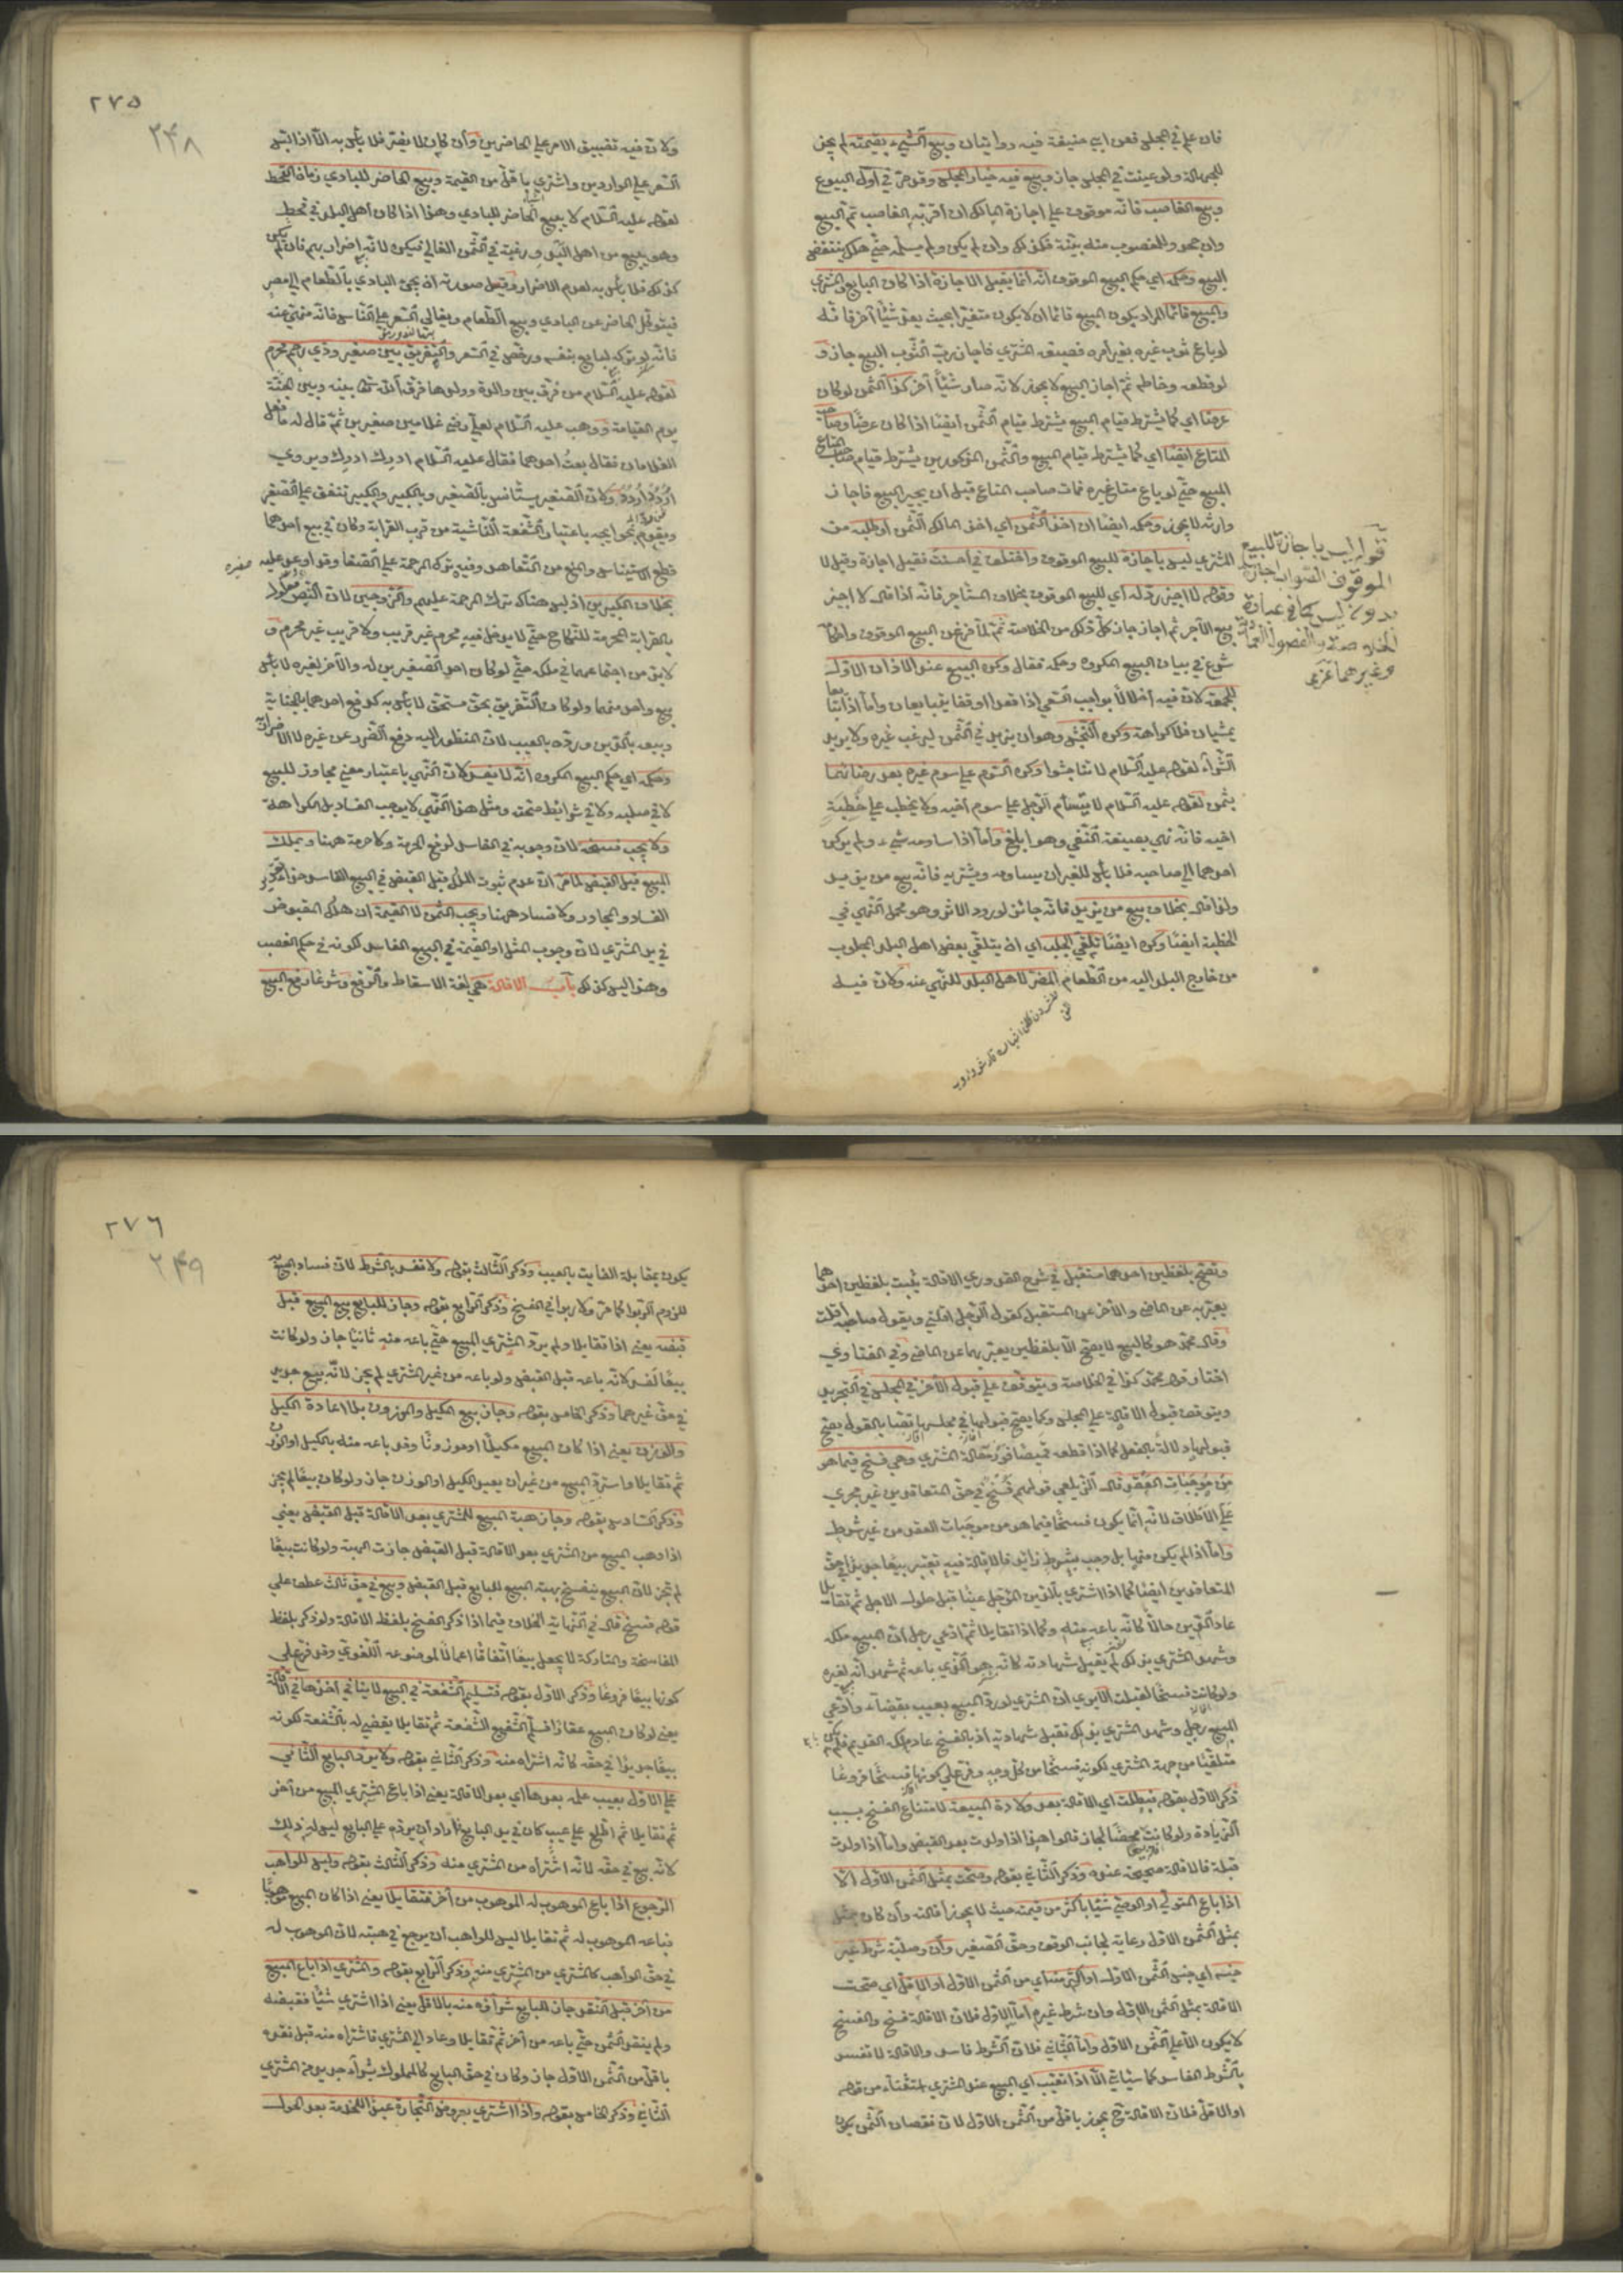 فان علم في المجلس فعن ابي حنيفة فيه روايتان وبيع الشيء بقيمته لم يجز
للجهالة ولو عينت في المجلس جاز وبيع فيه خيار المجلس وقد مر في اول البيوع
وبيع الغاصب فانه موقوف على اجازة المالك ان اقر به الغاصب تم البيع
وان جحد وللمغصوب منه بينة فكذلك وان لم يكن ولم يسلمه حتى هلك ينتقض
البيع وحكمه اي حكم البيع الموقوف انه انما يقبل الاجازة اذا كان البايع والمشتري
والمبيع قائما المراد بكون المبيع قائما ان لا يكون متغيرا بحيث يعد شيئا آخر فانه
لو باع ثوب غيره بغير امره فصبغه المشتري فاجاز رب الثوب البيع جاز و
لو قطعه وخاطه ثم اجاز البيع لا يجوز لانه صار شيئا آخر كذا الثمن لو كان
عرضا اي كما يشترط قيام المبيع يشترط قيام الثمن ايضا اذا كان عرضا وصاحب
المتاع ايضا اي كما يشترط قيام المبيع والثمن المذكورين يشترط قيام صاحب المتاع
المبيع حتى لو باع متاع غيره فمات صاحب المتاع قبل ان يجيز البيع فاجاز
وارثه لا يجوز وحكمه ايضا ان اخذ الثمن اي اخذ المالك الثمن او طلبه من
المشتري ليس باجازة للبيع الموقوف واختلف في احسنت فقيل اجازة وقيل لا
وقوله لا اجيز رد له اي للبيع الموقوف بخلاف المستأجر فانه اذا قال لا اجيز
بيع الآجر ثم اجاز جاز كل ذلك من الخلاصة ثم لما فرغ من البيع الموقوف واحكامه
شرع في بيان البيع المكروه وحكمه فقال وكره البيع عند الاذان الاول
للجمعة لان فيه اخلالا بواجب السعي اذا قعدا او وقفا يتبايعان واما اذا تبايعا
يمشيان فلا كراهة وكره النجش وهو ان يزيد في الثمن ليرغب غيره ولا يريد
الشراء لقوله عليه السلام لا تناجشوا وكره السوم على سوم غيره بعد رضائهما
بثمن لقوله عليه السلام لا يستام الرجل على سوم اخيه ولا يخطب على خطبة
اخيه فانه نهي بصيغة النفي وهو ابلغ واما اذا ساومه شيء ولم يركن
احدهما الى صاحبه فلا بأس للغير ان يساومه ويشتريه فانه بيع من يزيد
ولذا قال بخلاف بيع من يزيد فانه جائز لورود الاثر وهو محمل النهي في
الخطبة ايضا وكره ايضا تلقي الجلب اي ان يتلقى بعض اهل البلد المجلوب
من خارج البلد اليه من الطعام المضر لاهل البلد للنهي عنه ولان فيه
قوله ليس باجازة للبيع
الموقوف الصواب اجازة
بدون ليس كما في عبارة
الخلاصة والفصول العمادية
وغيرهما عزمى
٢٧٥
٢٤٨
ولان فيه تضييق الامر على الحاضرين وان كان لا يضر فلا بأس به الا اذا لبس
السعر على الواردين واشترى باقل من القيمة وبيع الحاضر للبادي زمان القحط
لقوله عليه السلام لا يبيع الحاضر للبادي وهذا اذا كان اهل البلد في قحط
وهو يبيع من اهل البدو رغبة في الثمن الغالي فيكره لانه اضرار بهم فان لم يكن
كذلك فلا بأس به لعدم الاضرار وقيل صورته ان يجئ البادي بالطعام الى مصر
فيتوكل الحاضر عن البادي ويبيع الطعام ويغالي السعر على الناس فانه منهي عنه
فانه لو تركه لباع بنفسه ورخص في السعر والتفريق بين صغير وذي رحم محرم
لقوله عليه السلام من فرق بين والدة وولدها فرق الله تعالى بينه وبين احبته
يوم القيامة ووهب عليه السلام لعلي رضي غلامين صغيرين ثم قال له ما فعل
الغلامان فقال بعت احدهما فقال عليه السلام ادرك ادرك ويروى
اردد اردد ولان الصغير يستأنس بالصغير وبالكبير والكبير يشفق على الصغير
ويقوم بحوايجه باعتبار الشفقة الناشية من قرب القرابة وكان في بيع احدهما
قطع الاستيناس والمنع من التعاهد وفيه ترك الرحمة على الضعفا وقد اوعد عليه
بخلاف الكبيرين اذ ليس هناك ترك الرحمة عليهم والزوجين لان النص معلول
بالقرابة المحرمة للنكاح حتى لا يدخل فيه محرم غير قريب ولا قريب غير محرم و
لابد من اجتماعهما في ملكه حتى لو كان احد الصغيرين له والآخر لغيره لا بأس
ببيع واحد منهما ولو كان التفريق بحق مستحق لا بأس به كدفع احدهما بالجناية
وبيعه بالدين ورده بالعيب لان المنظور اليه دفع الضرر عن غيره لا الاضرار
وحكمه اي حكم البيع المكروه انه لا يفسد لان النهي باعتبار معنى مجاور للبيع
لا في صلبه ولا في شرائط صحته ومثل هذا النهي لا يوجب الفساد بل الكراهة
ولا يجب فسخه لان وجوبه في الفاسد لرفع الحرمة ولا حرمة ههنا ويملك
المبيع قبل القبض لما مر ان عدم ثبوت الملك قبل القبض في البيع الفاسد حذرا
الفساد والمجاور ولا فساد ههنا ويجب الثمن لا القيمة ان هلك المقبوض
في يد المشتري لان وجوب المثل او القيمة في البيع الفاسد لكونه في حكم الغصب
وهذا ليس كذلك باب الاقالة هي لغة الاسقاط والرفع وشرعا رفع البيع
وتصح بلفظين احدهما مستقبل في شرح القدوري الاقالة يثبت بلفظين احدهما
يعبر به عن الماضي والآخر عن المستقبل كقول الرجل اقلني ويقول صاحبه اقلت
وقال محمد هو كالبيع لا يصح الا بلفظين يعبر بهما عن الماضي وفي الفتاوى
اختار قول محمد كذا في الخلاصة ويتوقف على قبول الآخر في المجلس في التجريد
ويتوقف قبول الاقالة على المجلس وكما يصح قبولها في مجلسها نصا بالقول يصح
قبولها دلالة بالفعل كما اذا قطعه قميصا فور مقالة المشتري وهي فسخ فيما هو
من موجبات العقد قال الزيلعي قولهم فسخ في حق المتعاقدين غير مجرى
على الاطلاق لانه انما يكون فسخا فيما هو من موجبات العقد من غير شرط
واما اذا لم يكن منها بل وجب بشرط زائد فالاقالة فيه تعتبر بيعا جديدا في حق
المتعاقدين ايضا كما اذا اشترى بالدين المؤجل عينا قبل حلول الاجل ثم تقايلا
عاد الدين حالا كانه باعه منه وكما اذا تقايلا ثم ادعى رجل ان المبيع ملكه
وشهد المشتري بذلك لم يقبل شهادته لانه هو الذي باعه ثم شهد انه لغيره
ولو كانت فسخا لقبلت الا يرى ان المشتري لو رد المبيع بعيب بقضاء وادعى
المبيع رجل وشهد المشتري بذلك تقبل شهادته اذ بالفسخ عاد ملكه القديم فلم يكن
متلقيا من جهة المشتري لكونه فسخا من كل وجه وفرع على كونها فسخا فروعا
ذكر الاول بقوله فبطلت اي الاقالة بعد ولادة المبيعة لامتناع الفسخ بسبب
الزيادة ولو كانت محضا لجاز قالوا هذا اذا ولدت بعد القبض واما اذا ولدت
قبله فالاقالة صحيحة عنده وذكر الثاني بقوله وصحت بمثل الثمن الاول الا
اذا باع المتولي او الوصي شيئا باكثر من قيمته حيث لا يجوز اقالته وان كان بمثل
بمثل الثمن الاول رعاية لجانب الوقف وحق الصغير وان وصلية شرط غير
جنسه اي جنس الثمن الاول او اكثر منه اي من الثمن الاول او الاقل اي صحت
الاقالة بمثل الثمن الاول وان شرط غيره اما الاول فلان الاقالة فسخ والفسخ
لا يكون الا على الثمن الاول واما الثاني فلان الشرط فاسد والاقالة لا تفسد
بالشرط الفاسد كما سيأتي الا اذا تعيب اي المبيع عند المشتري استثناء من قوله
او الاقل فان الاقالة ح يجوز باقل من الثمن الاول لان نقصان الثمن يكون
٢٧٦
٢٤٩
يكون بمقابلة الفايت بالعيب وذكر الثالث بقوله ولا تفسد بالشرط لان فساد البيع به
للزوم الربوا كما مر ولا ربوا في الفسخ وذكر الرابع بقوله وجاز للبايع بيع المبيع قبل
قبضه يعني اذا تقايلا ولم يرد المشتري المبيع حتى باعه منه ثانيا جاز ولو كانت
بيعا لفسد لانه باعه قبل القبض ولو باعه من غير المشتري لم يجز لانه بيع جديد
في حق غيرهما وذكر الخامس بقوله وجاز بيع المكيل والموزون بلا اعادة الكيل
والوزن يعني اذا كان المبيع مكيلا او موزونا وقد باعه منه بالكيل او الوزن
ثم تقايلا واسترد المبيع من غير ان يعيد الكيل او الوزن جاز ولو كان بيعا لم يجز
وذكر السادس بقوله وجاز هبة المبيع للمشتري بعد الاقالة قبل القبض يعني
اذا وهب المبيع من المشتري بعد الاقالة قبل القبض جازت الهبة ولو كانت بيعا
لم تجز لان البيع ينفسخ بهبة المبيع للبايع قبل القبض وبيع في حق ثالث عطف على
قوله فسخ قال في النهاية الخلاف فيما اذا ذكر الفسخ بلفظ الاقالة ولو ذكر بلفظ
المفاسخة والمتاركة لا يجعل بيعا اتفاقا اعمالا لموضوعه اللغوي وقد فرع على
كونها بيعا فروعا وذكر الاول بقوله فتسليم الشفعة في البيع لا ينافي اخذها في الاقالة
يعني لو كان المبيع عقارا فسلم الشفيع الشفعة ثم تقايلا يقضي له بالشفعة لكونه
بيعا جديدا في حقه كانه اشتراه منه وذكر الثاني بقوله ولا يرد البايع الثاني
على الاول بعيب علمه بعدها اي بعد الاقالة يعني اذا باع المشتري المبيع من آخر
ثم تقايلا ثم اطلع على عيب كان في يد البايع فاراد ان يرده على البايع ليس له ذلك
لانه بيع في حقه كانه اشتراه من المشتري منه وذكر الثالث بقوله وليس للواهب
الرجوع اذا باع الموهوب له الموهوب من آخر فتقايلا يعني اذا كان المبيع موهوبا
فباعه الموهوب له ثم تقايلا ليس للواهب ان يرجع في هبته لان الموهوب له
في حق الواهب كالمشتري من المشتري منه وذكر الرابع بقوله والمشتري اذا باع المبيع
من آخر قبل النقد جاز للبايع شراؤه منه بالاقل يعني اذا اشترى شيئا فقبضه
ولم ينقد الثمن حتى باعه من آخر ثم تقايلا وعاد الى المشتري فاشتراه منه قبل نقده
باقل من الثمن الاول جاز وكان في حق البايع كالمملوك بشراء جديد من المشتري
الثاني وذكر الخامس بقوله واذا اشترى بعروض التجارة عبدا للخدمة بعد الحول